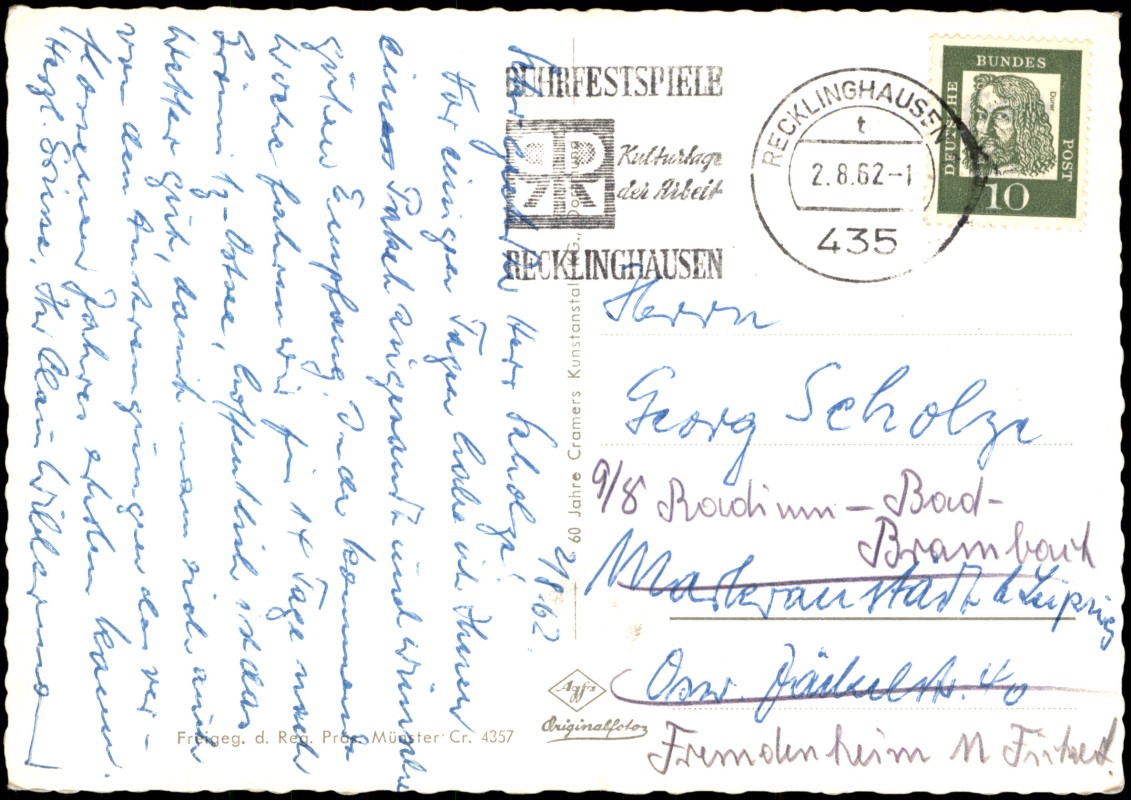 2/8.62
Sehr geehrter Herr Scholze!
Vor einigen Tagen habe ich Ihnen
ein Paket zugesandt und wünsche
guten Empfang. In der kommenden
Woche fahren wir für 14 Tage nach
Ostsee, hoffentlich ist das
Wetter gut, damit man sich auch
von den Anstrengungen des ver-
Jahres erholen kann.
Herzl. Grüsse, Ihr
RUHRFESTSPIELE
Kulturtage
der Arbeit
RECKLINGHAUSEN
RECKLINGHAUSEN
t
2.8.62-1
435
DEUTSCHE
BUNDES
POST
Dürer
10
Herrn
Georg Scholze
9/8 Radium - Bad-
Brambach
Markranstädt b Leipzig
Osw. 40
Fremdenheim
60 Jahre Cramers Kunstanstalt
Agfa
Originalfoto
Freigeg. d. Reg. Präs. Münster Cr. 4357